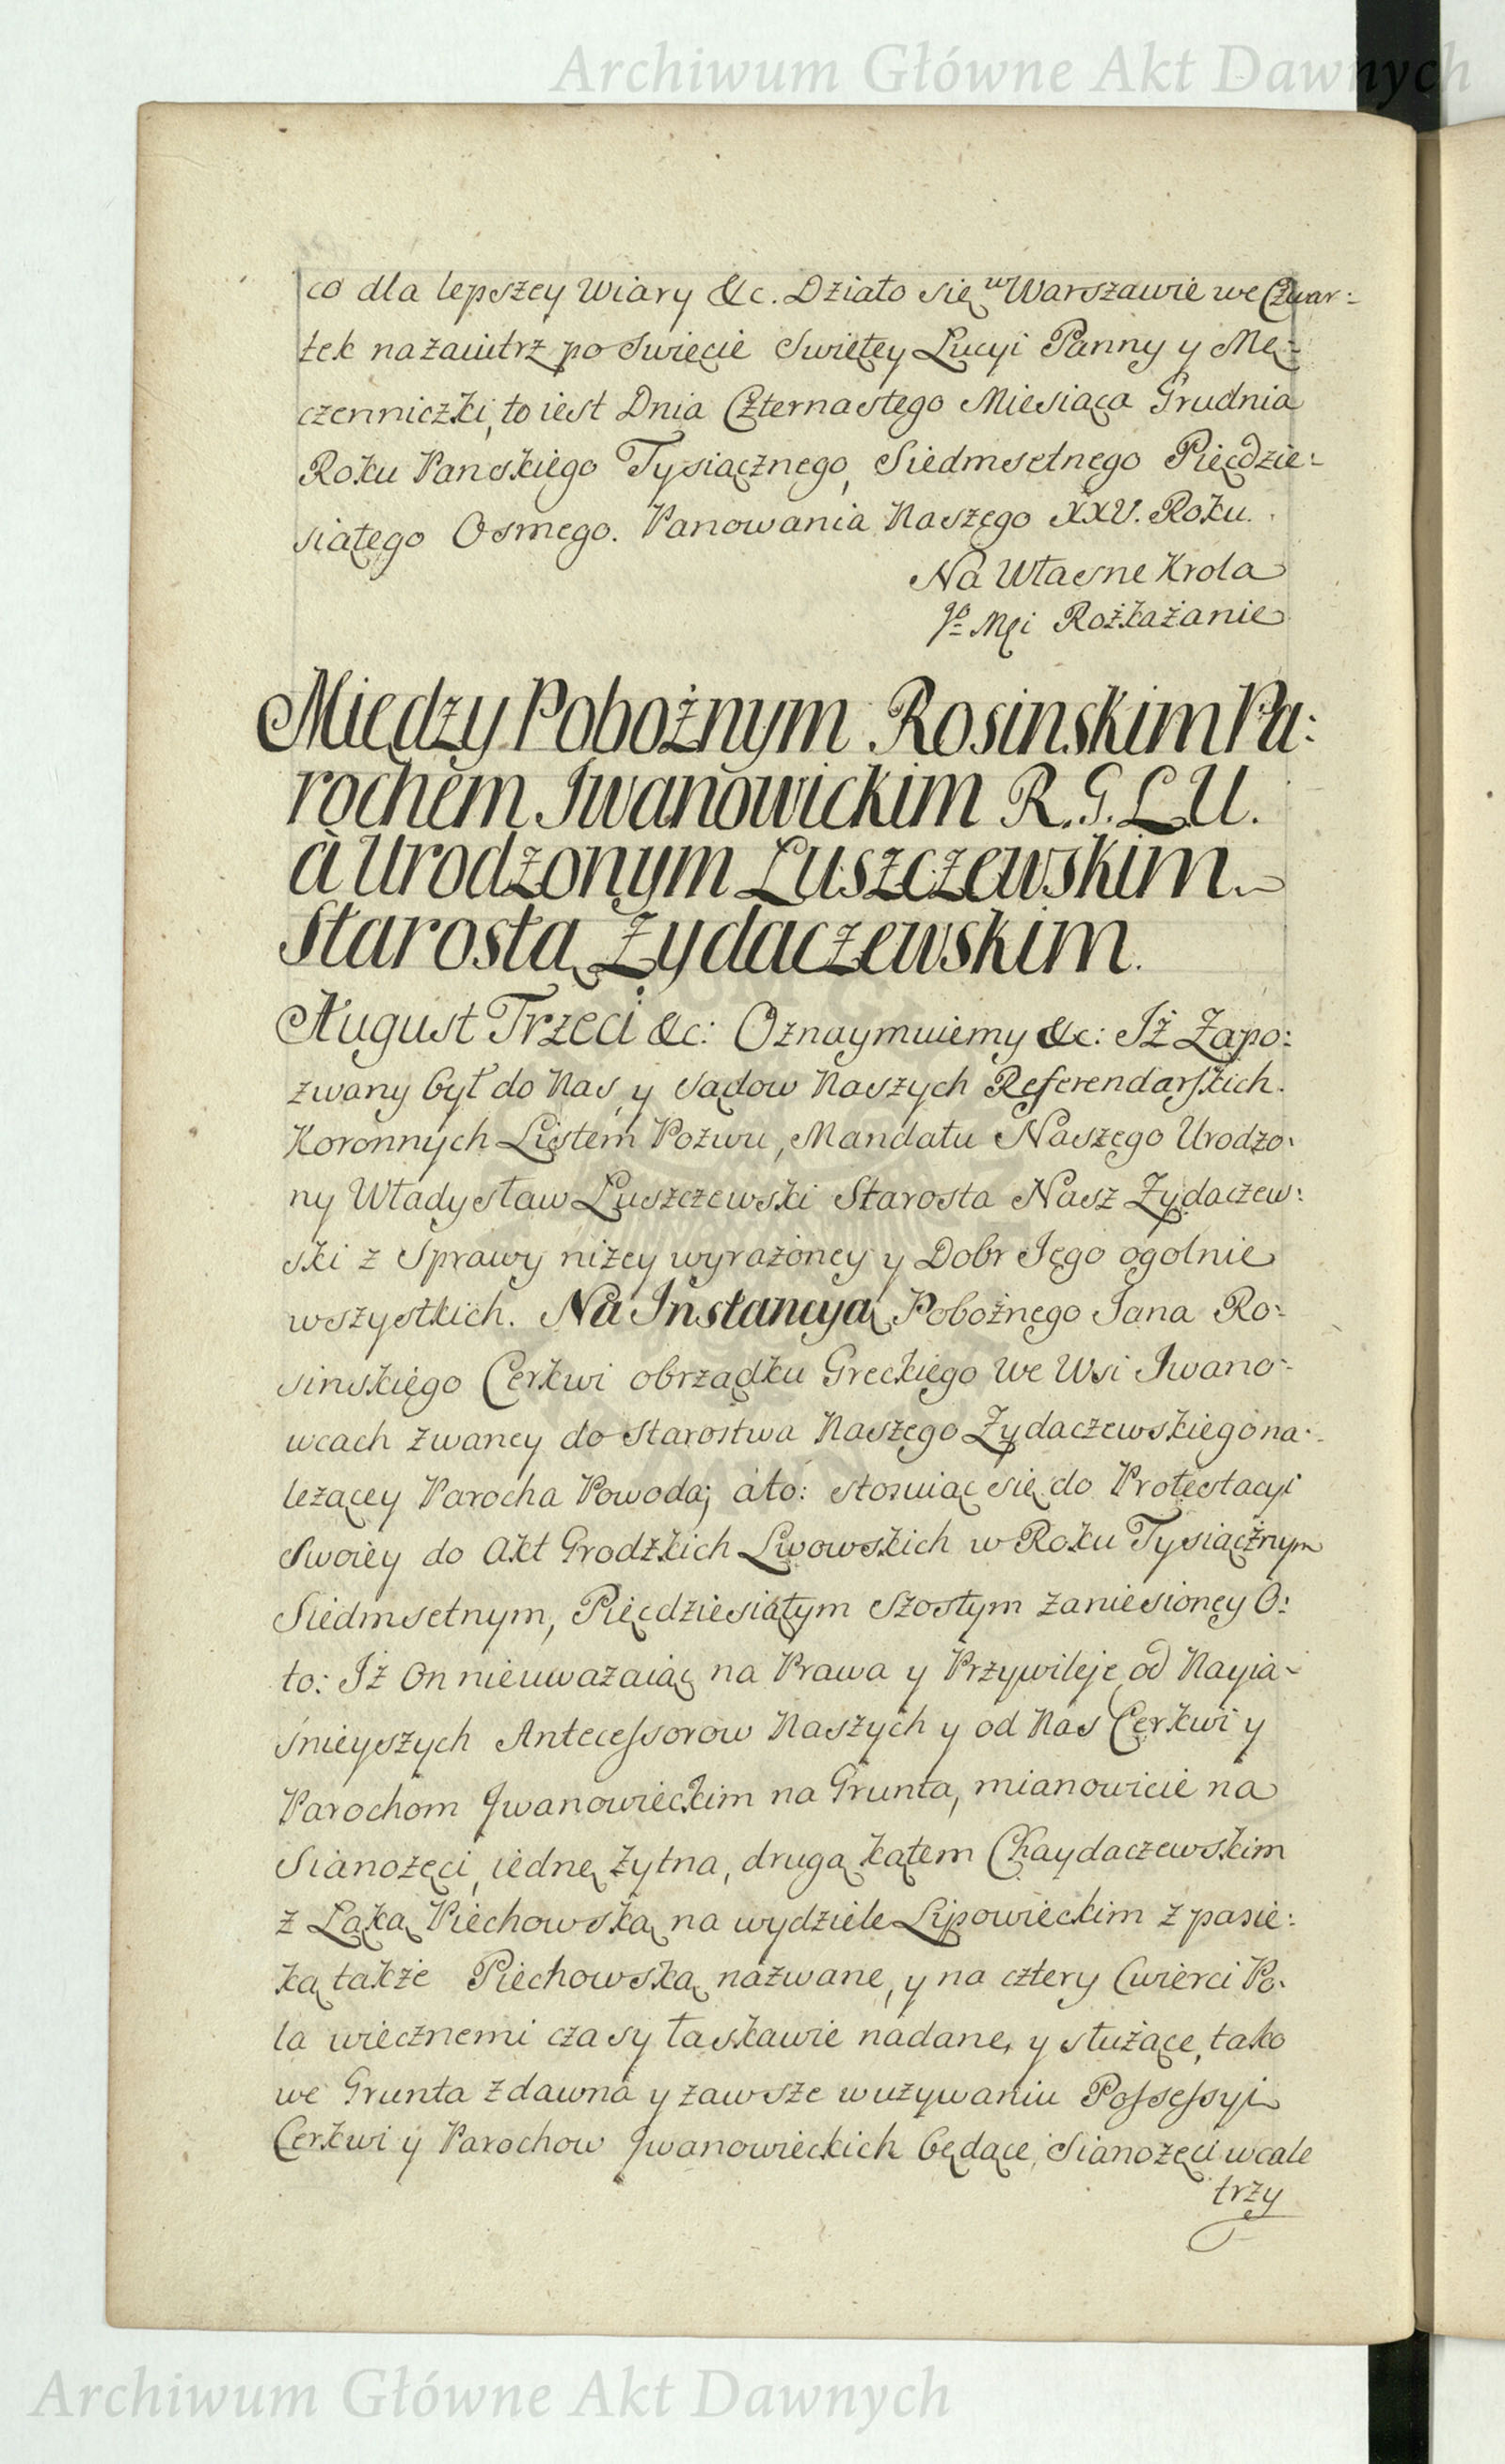 Archiwum Główne Akt Dawnych
co dla lepszey Wiary &c. Działo się w Warszawie we Czwar:
tek nazaiutrz po Swięcie Swiętey Lucyi Panny y Mę:
czenniczki, to iest Dnia Czternastego Miesiąca Grudnia
Roku Panskiego Tysiącznego, Siedmsetnego Pięcdzie:
siątego Osmego. Panowania Naszego XXV. Roku.
Na Własne Krola
Jo Mci Rożkażanie
Między Pobożnym Rosinskim Pa:
rochem Iwanowickim R. G. L. U.
à Urodzonym Łuszczewskim
Starostą Zydaczewskim.
August Trzeci &c: Oznaymuiemy &c: Iż Zapo:
zwany był do Nas y sądow Naszych Referendarskich
Koronnych Listem Pozwu, Mandatu Naszego Urodzo:
ny Władysław Łuszczewski Starosta Nasz Zydaczew:
ski z Sprawy niżey wyrażoney y Dobr Iego ogolnie
wszystkich. Na Instancyą Pobożnego Jana Ro:
sinskiego Cerkwi obrządku Greckiego we Wsi Iwano:
wcach zwaney do Starostwa Naszego Zydaczewskiego na:
leżącey Parocha Powoda; ato: stosuiąc się do Protestacyi
Swoiey do Akt Grodzkich Lwowskich w Roku Tysiącznym
Siedmsetnym, Pięcdziesiątym Szostym zaniesioney O:
to: Iż On nieuważaiąc na Prawa y Przywileje od Nayia:
śnieyszych Antecessorow Naszych y od Nas Cerkwi y
Parochom Iwanowieckim na Grunta, mianowicie na
Sianożęci, iednę Żytna, drugą kątem Chaydaczewskim
z Łąką Piechowską na wydziele Lipowieckim z pasie:
ką także Piechowską nazwane, y na cztery Cwierci Po:
la wiecznemi czasy łaskawie nadane, y służące, tako
we Grunta zdawna y zawsze w używaniu Possessyi
Cerkwi y Parochow Iwanowieckich będące, Sianożęci wcale
trzy
Archiwum Główne Akt Dawnych